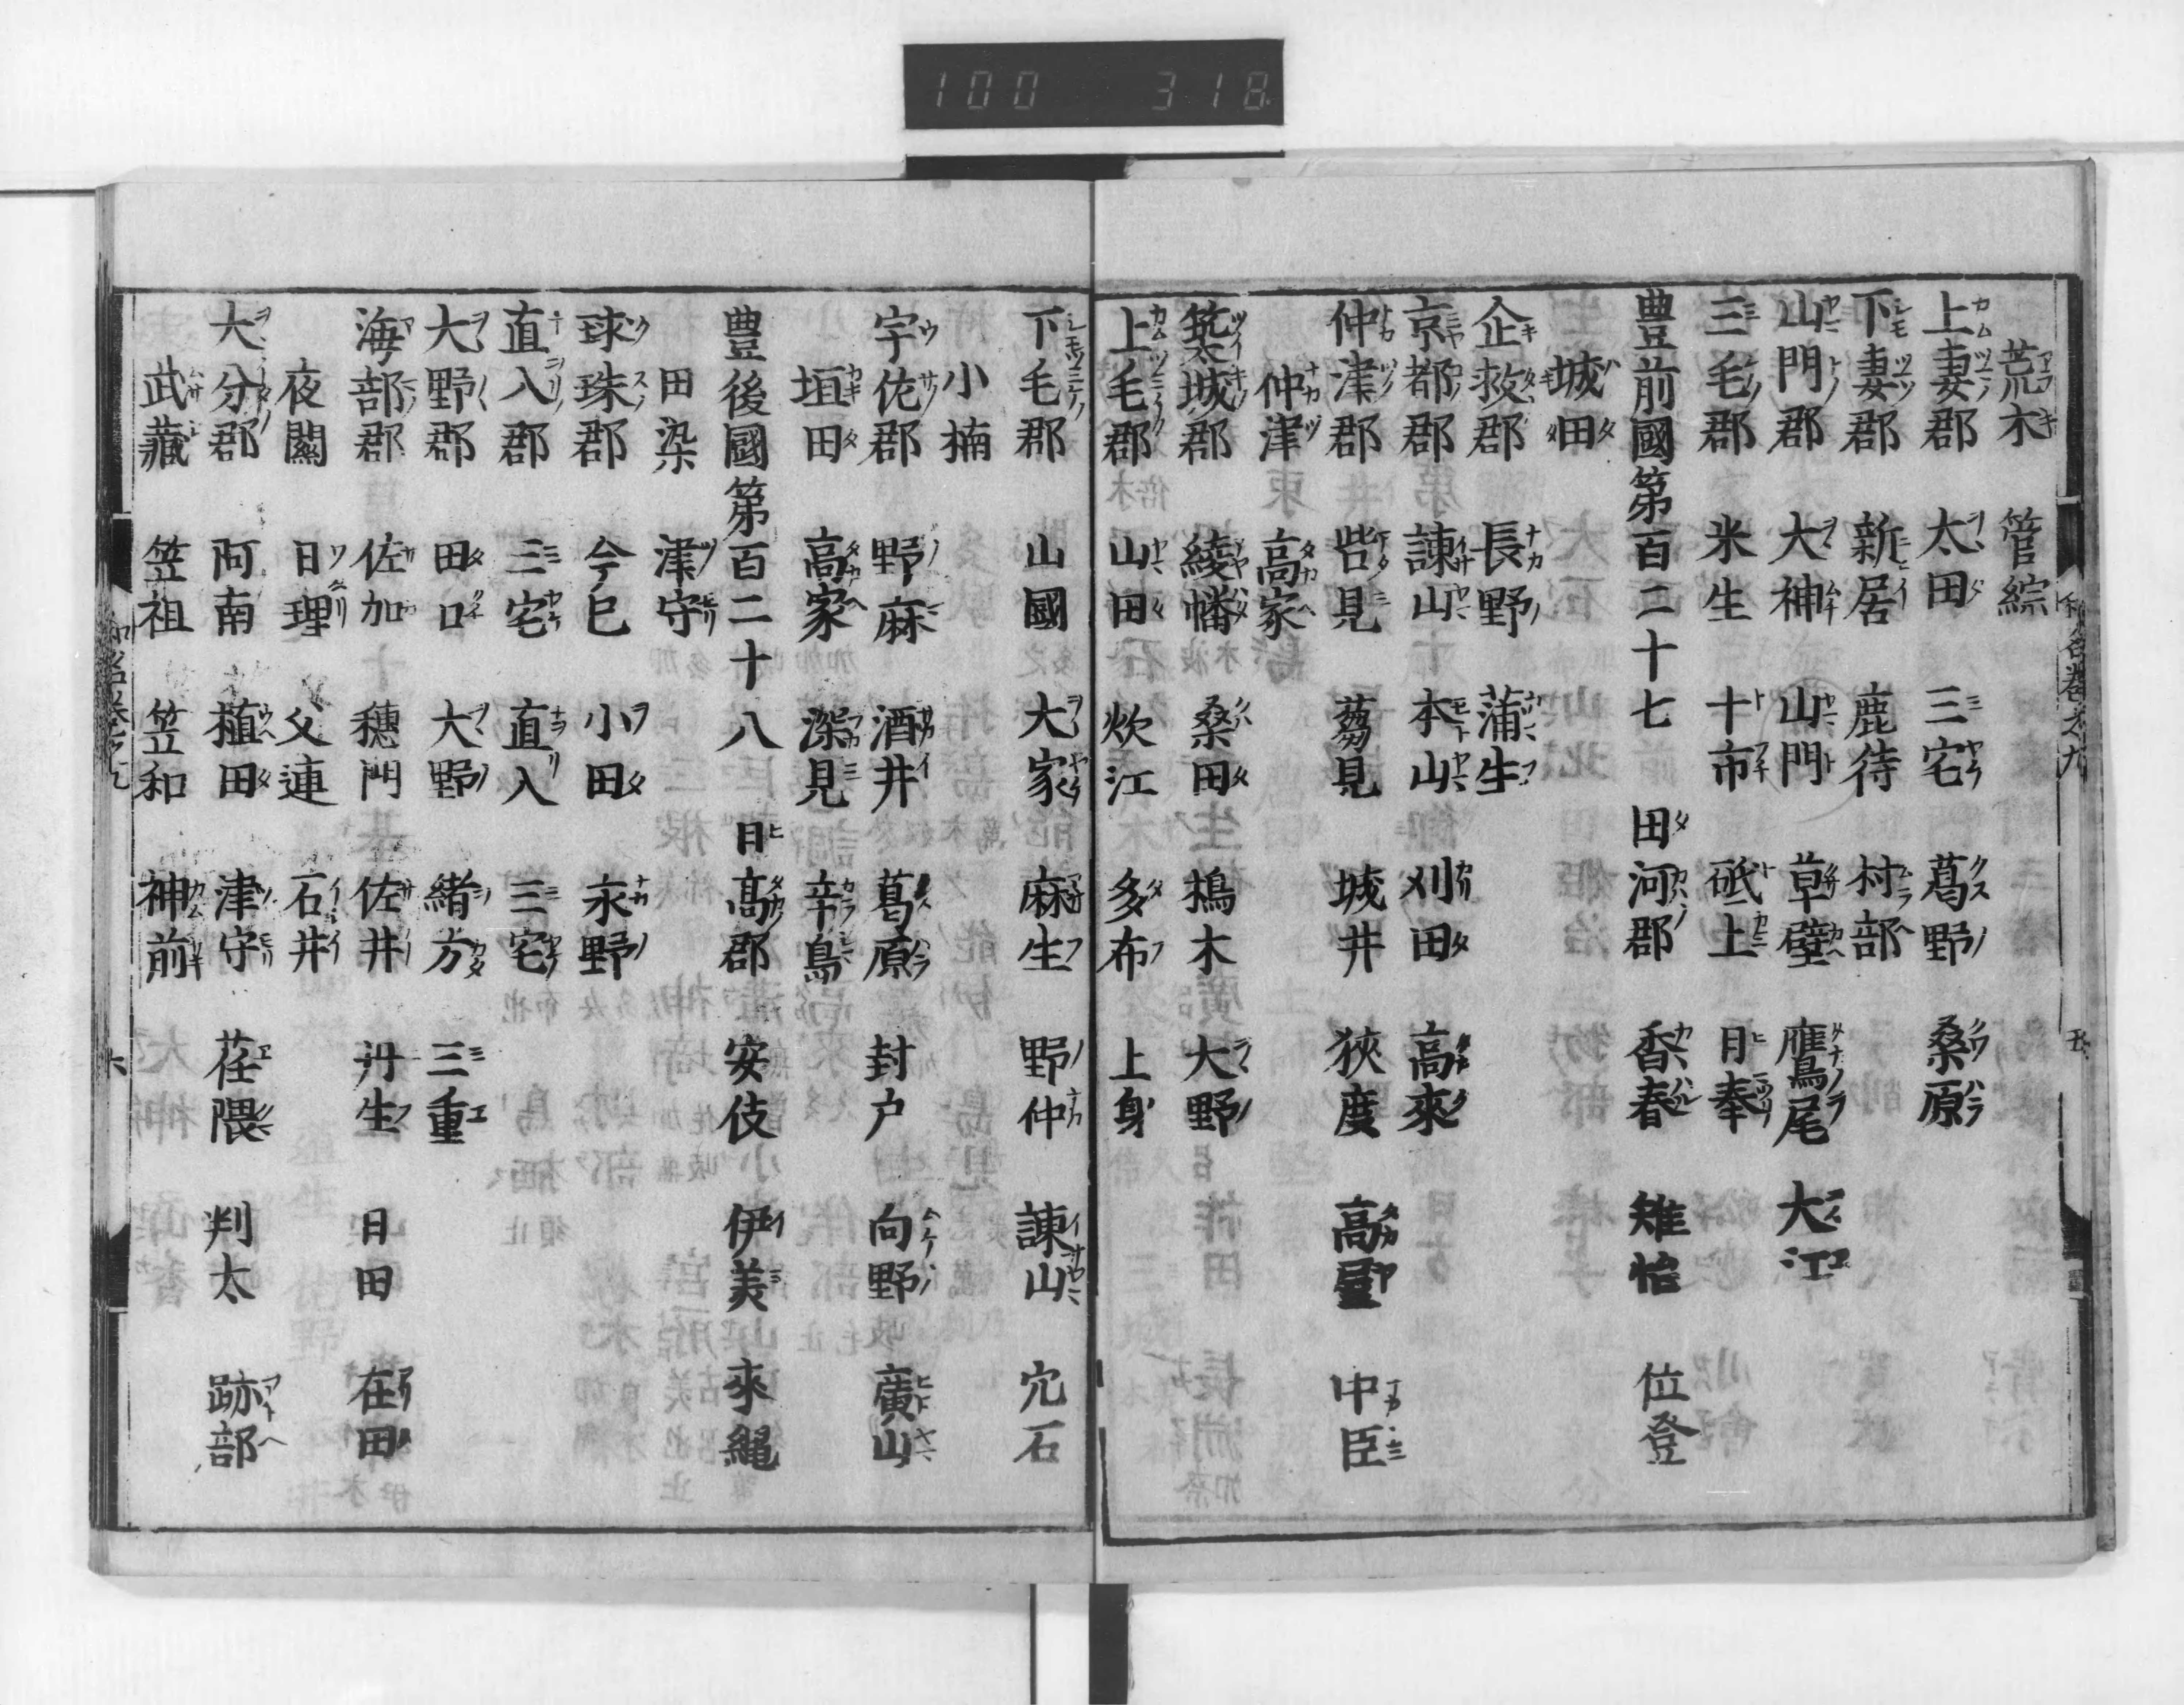 100 318
荒木 管綜
上妻郡 太田 三宅 葛野 桑原
下妻郡 新居 鹿待 村部
山門郡 大神 山門 草壁 鷹尾 大江
三毛郡 米生 十市 砥上 日奉
豊前國第百二十七 田河郡 香春 雉怡 位登
城田
企救郡 長野 蒲生
京都郡 諫山 本山 刈田 高來
仲津郡 呰見 蒭見 城井 狹度 高屋 中臣
仲津 高家
築城郡 綾幡 桑田 搗木 大野
上毛郡 山田 炊江 多布 上身
下毛郡 山國 大家 麻生 野仲 諫山 穴石
小楠
宇佐郡 野麻 酒井 葛原 封户 向野 廣山
垣田 高家 深見 辛島
豊後國第百二十八 日高郡 安伎 伊美 來繩
田染 津守
球珠郡 今巳 小田 永野
直入郡 三宅 直入 三宅
大野郡 田口 大野 緒方 三重
海部郡 佐加 穗門 佐井 丹生 日田 在田
夜關 日理 父連 石井
大分郡 阿南 植田 津守 荏隈 判太 跡部
武藏 笠祖 笠和 神前